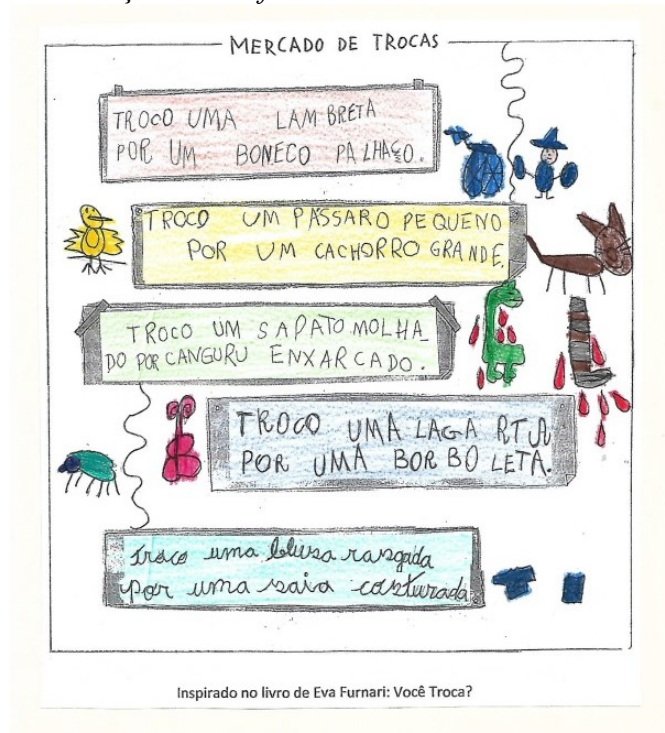 MERCADO DE TROCAS
TROCO UMA LAMBRETA
POR UM BONECO PALHAÇO.
TROCO UM PÁSSARO PEQUENO
POR UM CACHORRO GRANDE.
TROCO UM SAPATO MOLHA
DO POR CANGURU ENXARCADO.
TROCO UMA LAGARTA
POR UMA BORBOLETA.
Troco uma blusa rasgada
por uma saia costurada
Inspirado no livro de Eva Furnari: Você Troca?